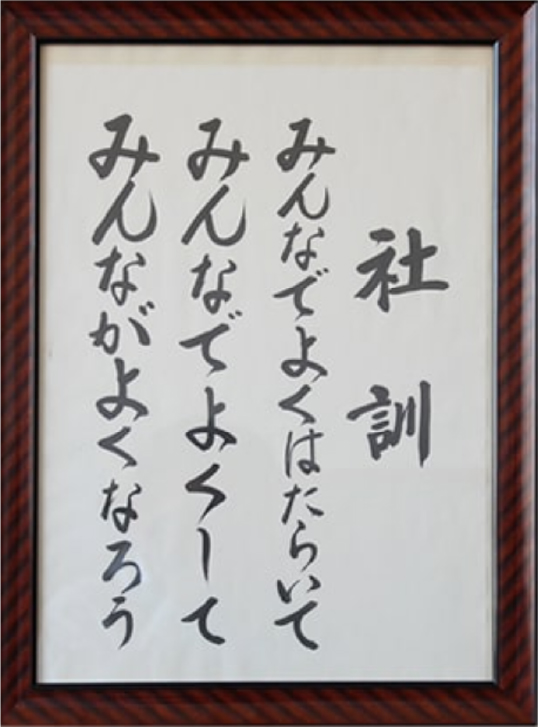 社訓
みんなでよくはたらいて
みんなでよくして
みんながよくなろう